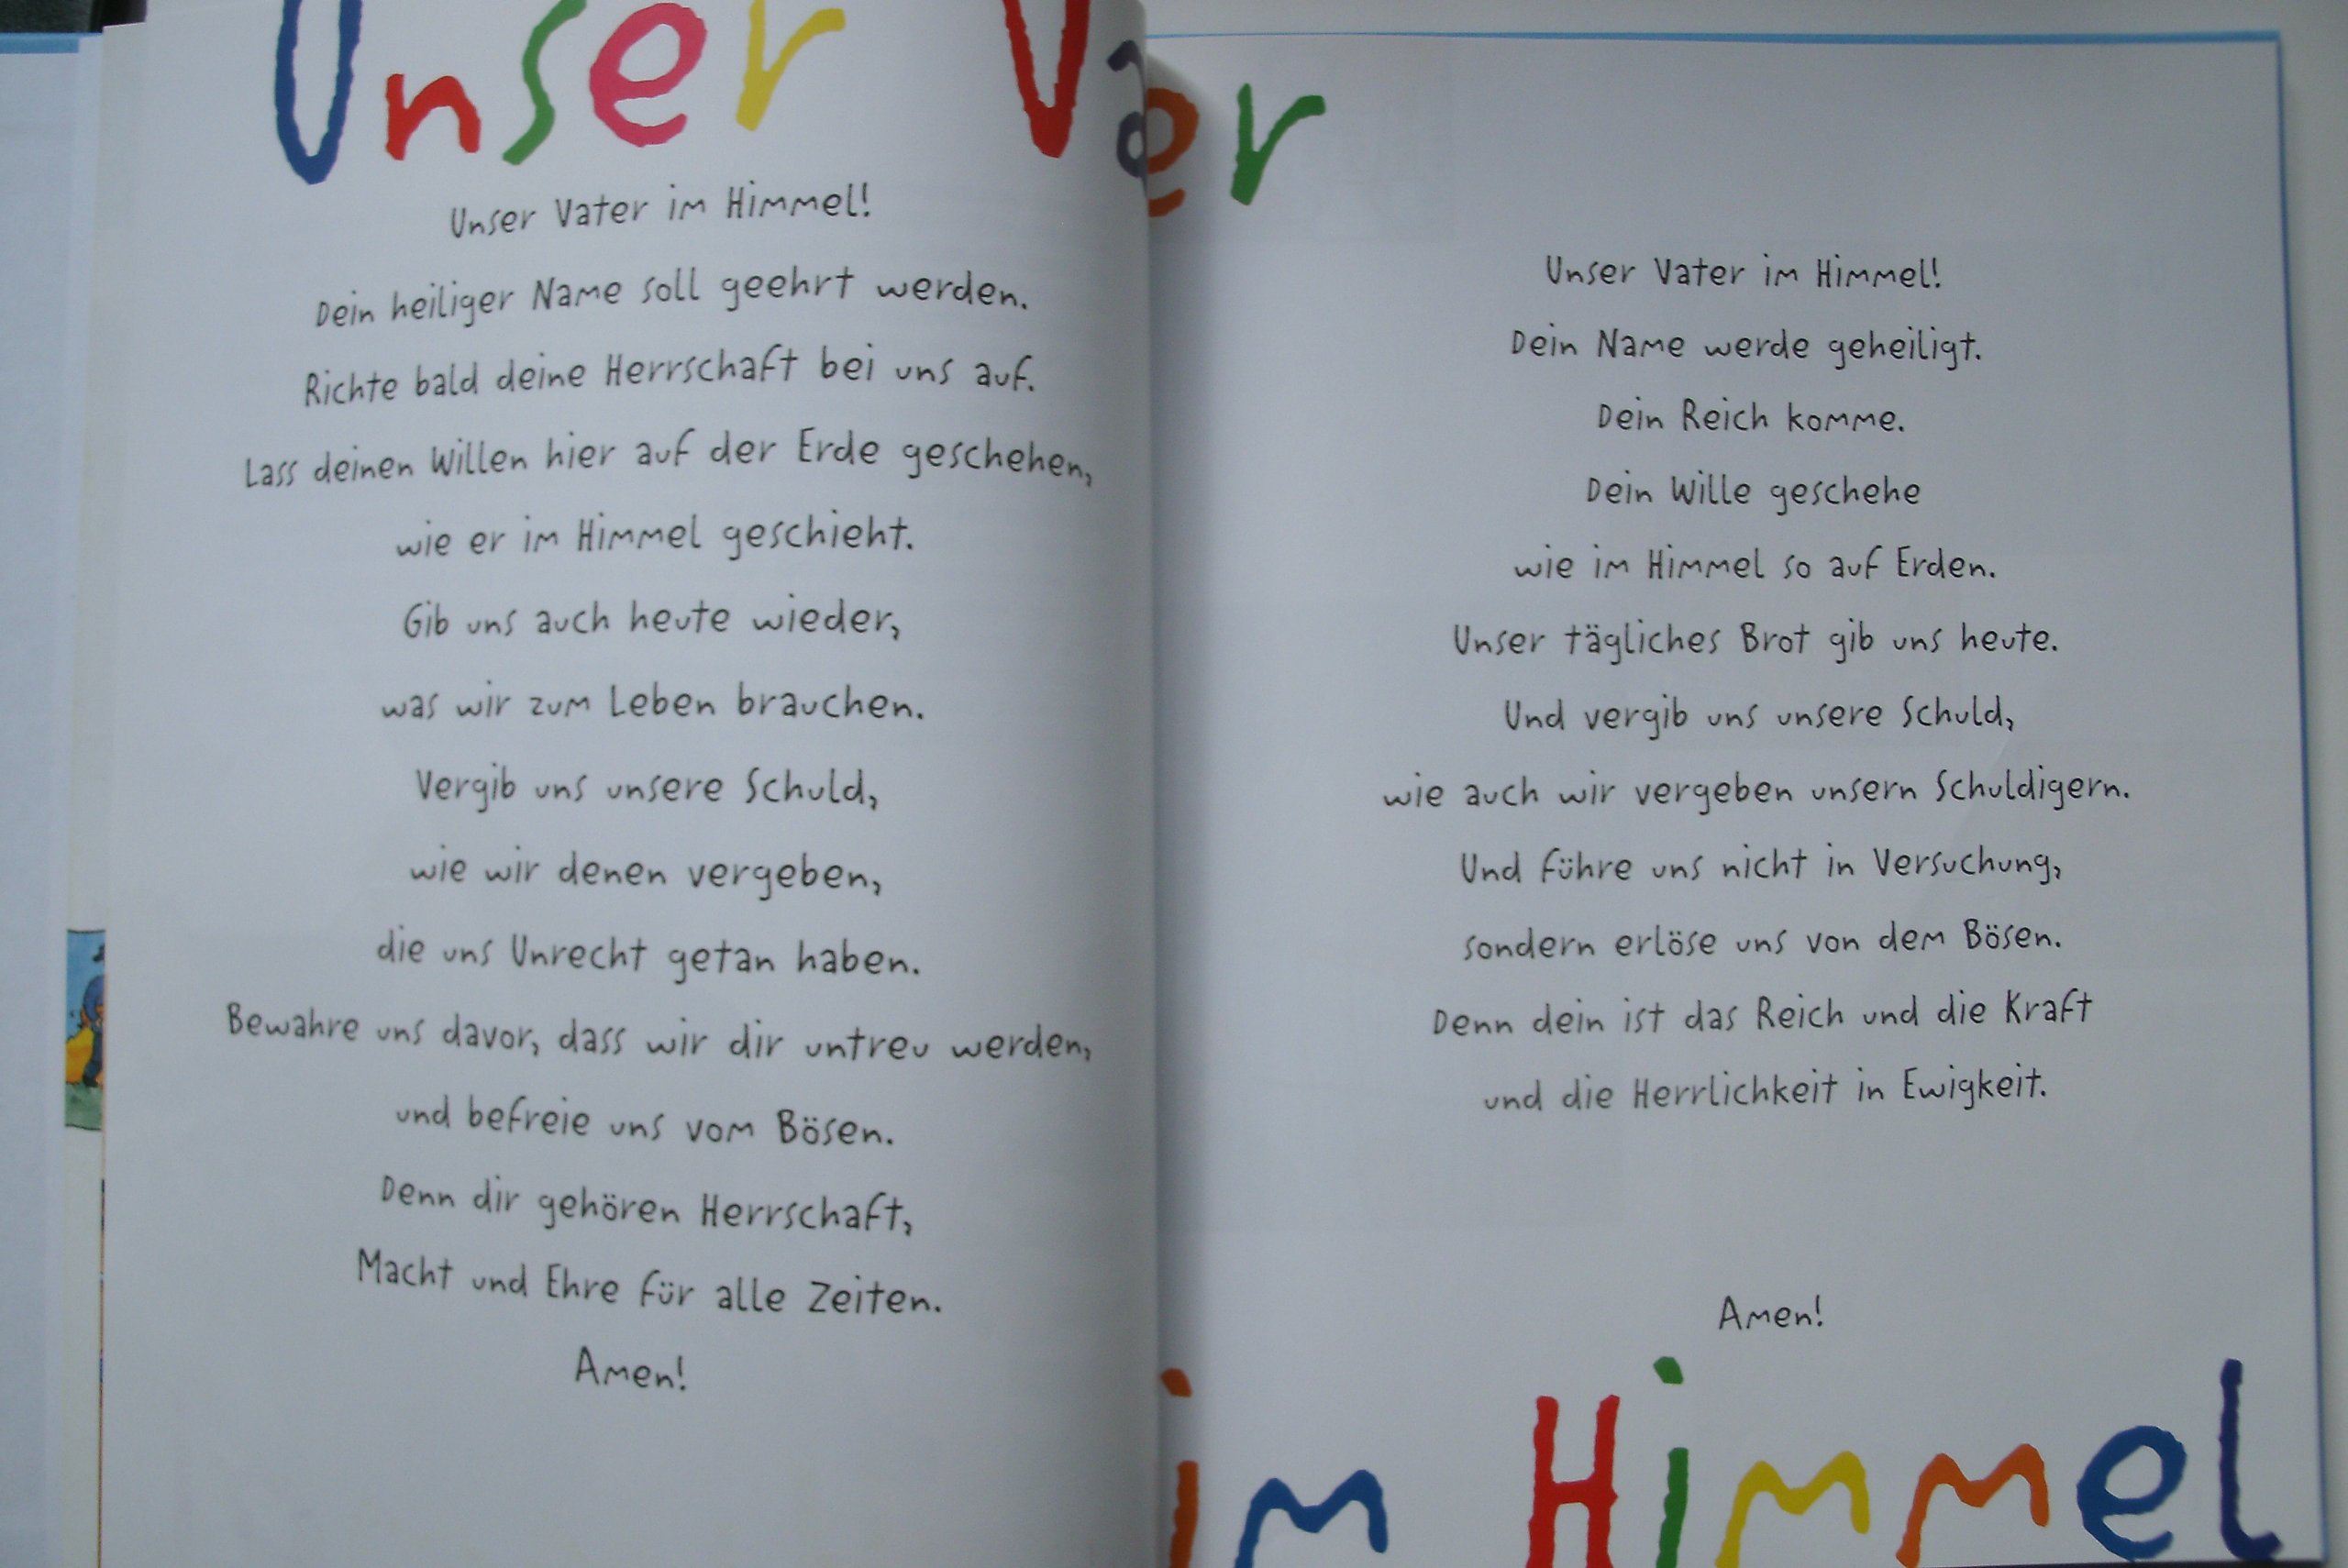 Unser Vaer
Unser Vater im Himmel!
Dein heiliger Name soll geehrt werden.
Richte bald deine Herrschaft bei uns auf.
Lass deinen Willen hier auf der Erde geschehen,
wie er im Himmel geschieht.
Gib uns auch heute wieder,
was wir zum Leben brauchen.
Vergib uns unsere Schuld,
wie wir denen vergeben,
die uns Unrecht getan haben.
Bewahre uns davor, dass wir dir untreu werden,
und befreie uns vom Bösen.
Denn dir gehören Herrschaft,
Macht und Ehre für alle Zeiten.
Amen!
Unser Vater im Himmel!
Dein Name werde geheiligt.
Dein Reich komme.
Dein Wille geschehe
wie im Himmel so auf Erden.
Unser tägliches Brot gib uns heute.
Und vergib uns unsere Schuld,
wie auch wir vergeben unsern Schuldigern.
Und führe uns nicht in Versuchung,
sondern erlöse uns von dem Bösen.
Denn dein ist das Reich und die Kraft
und die Herrlichkeit in Ewigkeit.
Amen!
im Himmel